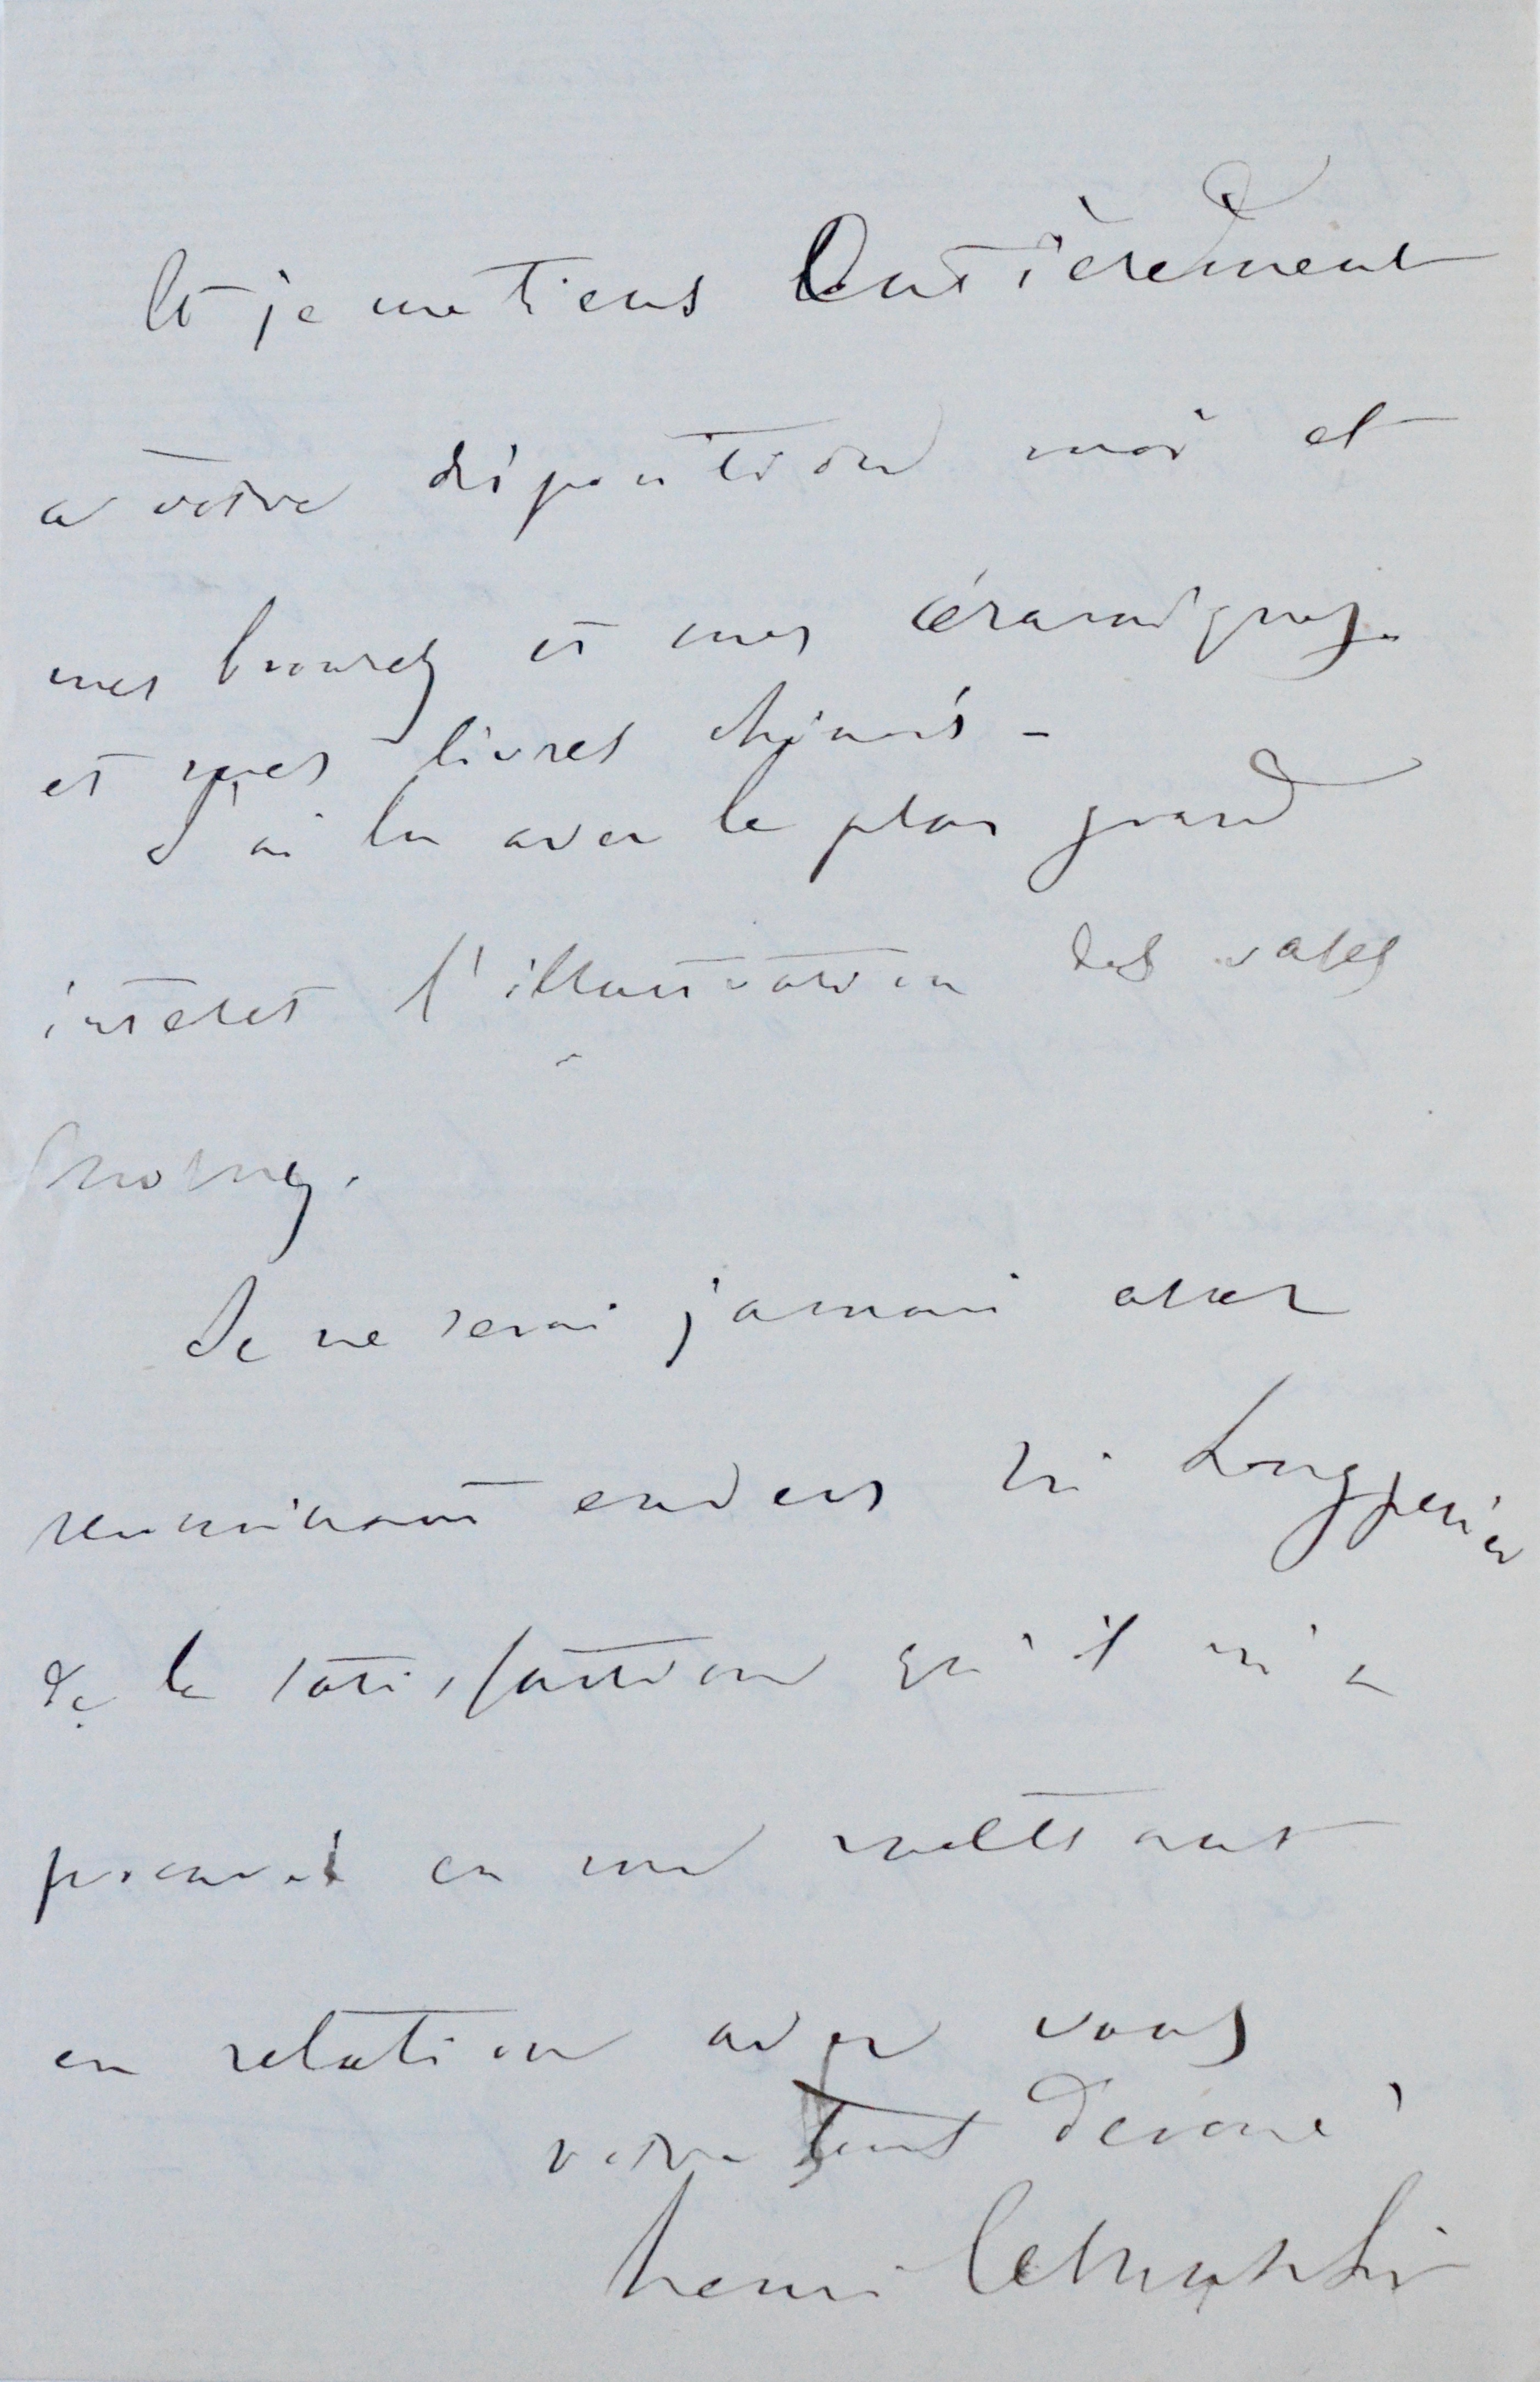 Et je me tiens Entièrement
a votre disposition moi et
mes bronzes et mes céramiques.
et mes livres chinois -
J'ai lu avec le plus grand
intéret l'illustration des vases
Je ne serai jamais assez
reconnaissant envers Mr Longperier
de la satisfaction qu'il m'a
procuré en me mettant
en relation avec vous
votre tout devoué
henri Cernuschi